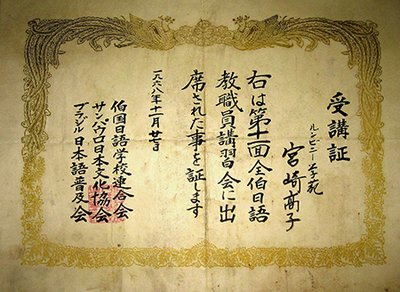 受講証
ルンビニー学苑
宮崎髙子
右は第十一回全伯日語
教職員講習会に出
席された事を証します
一九六八年十一月廿日
伯国日語学校連合会
サンパウロ日本文化協会
ブラジル日本語普及会